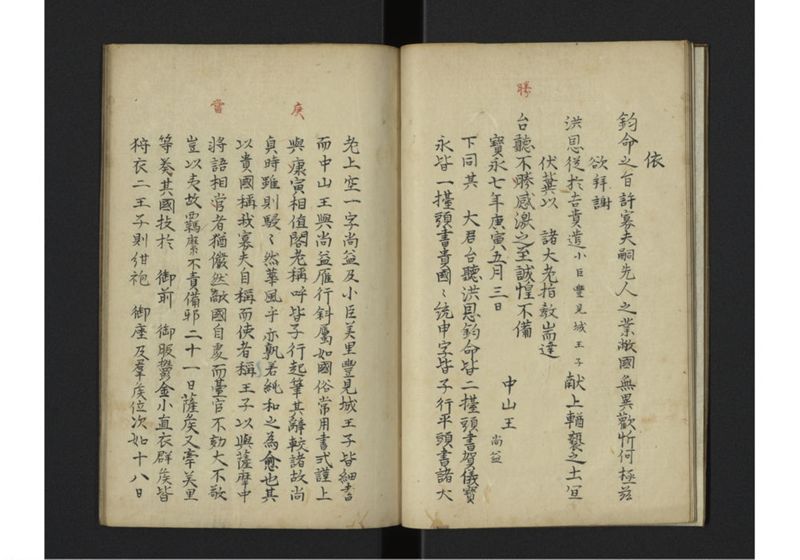 依
鈞命之旨許寡夫嗣先人之業敝國無異歡忻何極茲
欲拜謝
洪恩從於吉貴遣小臣豐見城王子獻上輶褻之土宜
伏冀以 諸大老指教耑達
勝
台聽不勝感激之至誠惶不備
寶永七年庚寅五月三日
中山王 尚益
下同其 大君台聽洪恩鈞命皆二擡頭書賀儀寶
永皆一擡頭書貴國〻統申字皆子行平頭書諸大
老上空一字尚益及小臣美里豐見城王子皆細書
而中山王與尚益雁行斜屬如國俗常用書式謹上
庚
與康寅相值閣老稱呼皆子行起筆其辭較諸故尚
貞時雖則駸〻然華風乎亦孰若純和之為愈也其
以貴國稱我寡夫自稱而使者稱王子以與薩摩中
當
將語相嘗者猶儼然敵國自處而臺官不劾大不敬
豈以夷故羈縻不責備耶二十一日薩矦又率美里
等奏其國技於 御前 御服欝金小直衣群矦皆
狩衣二王子則紺袍 御座及羣矦位次如十八日